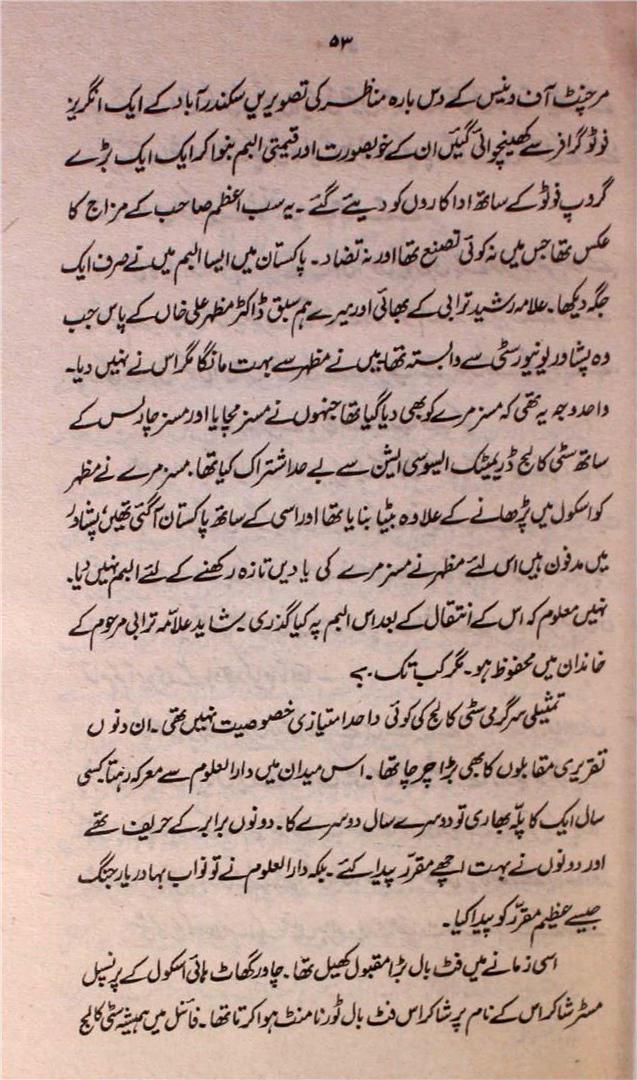 ۵۳
مرچنٹ آف وینس کے دس بارہ مناظر کی تصویریں سکندر آباد کے ایک انگریز
فوٹوگرافر سے کھینچوائی گئیں ان کے خوبصورت اور قیمتی البم بنوا کر ایک ایک بڑے
گروپ فوٹو کے ساتھ اداکاروں کو دیئے گئے ۔ یہ سب اعظم صاحب کے مزاج کا
عکس تھا جس میں نہ کوئی تصنع تھا اور نہ تضاد ۔ پاکستان میں ایسا البم میں نے صرف ایک
جگہ دیکھا ۔ علامہ رشید ترابی کے بھائی اور میرے ہم سبق ڈاکٹر مظہر علی خاں کے پاس جب
وہ پشاور یونیورسٹی سے وابستہ تھا ۔ میں نے مظہر سے بہت مانگا مگر اس نے نہیں دیا ۔
واحد وجہ یہ تھی کہ مسز مرے کو بھی دیا گیا تھا جنہوں نے مسز مچایا اور مسز چارلس کے
ساتھ سٹی کالج ڈریمیٹک ایسوسی ایشن سے بے حد اشتراک کیا تھا ۔ مسز مرے نے مظہر
کو اسکول میں پڑھانے کے علاوہ بیٹا بنایا تھا اور اسی کے ساتھ پاکستان آگئی تھیں، پشاور
میں مدفون ہیں اس لئے مظہر نے مسز مرے کی یادیں تازہ رکھنے کے لئے البم نہیں دیا ۔
نہیں معلوم کہ اس کے انتقال کے بعد اس البم پہ کیا گذری ۔ شاید علامّہ ترابی مرحوم کے
خاندان میں محفوظ ہو ۔ مگر کب تک ۔ ؟
تمثیلی سرگرمی سٹی کالج کی کوئی واحد امتیازی خصوصیت نہیں تھی ۔ ان دنوں
تقریری مقابلوں کا بھی بڑا چرچا تھا ۔ اس میدان میں دارالعلوم سے معرکہ رہتا کسی
سال ایک کا پلّہ بھاری تو دوسرے سال دوسرے کا ۔ دونوں برابر کے حریف تھے
اور دونوں نے بہت اچھے مقرّر پیدا کئے ۔ بلکہ دارالعلوم نے تو نواب بہادر یار جنگ
جیسے عظیم مقرّر کو پیدا کیا ۔
اسی زمانے میں فٹ بال بڑا مقبول کھیل تھا ۔ چادر گھاٹ ہائی اسکول کے پرنسپل
مسٹر شاکراس کے نام پر شاکراس فٹ بال ٹورنامنٹ ہوا کرتا تھا ۔ فائنل میں ہمیشہ سٹی کالج